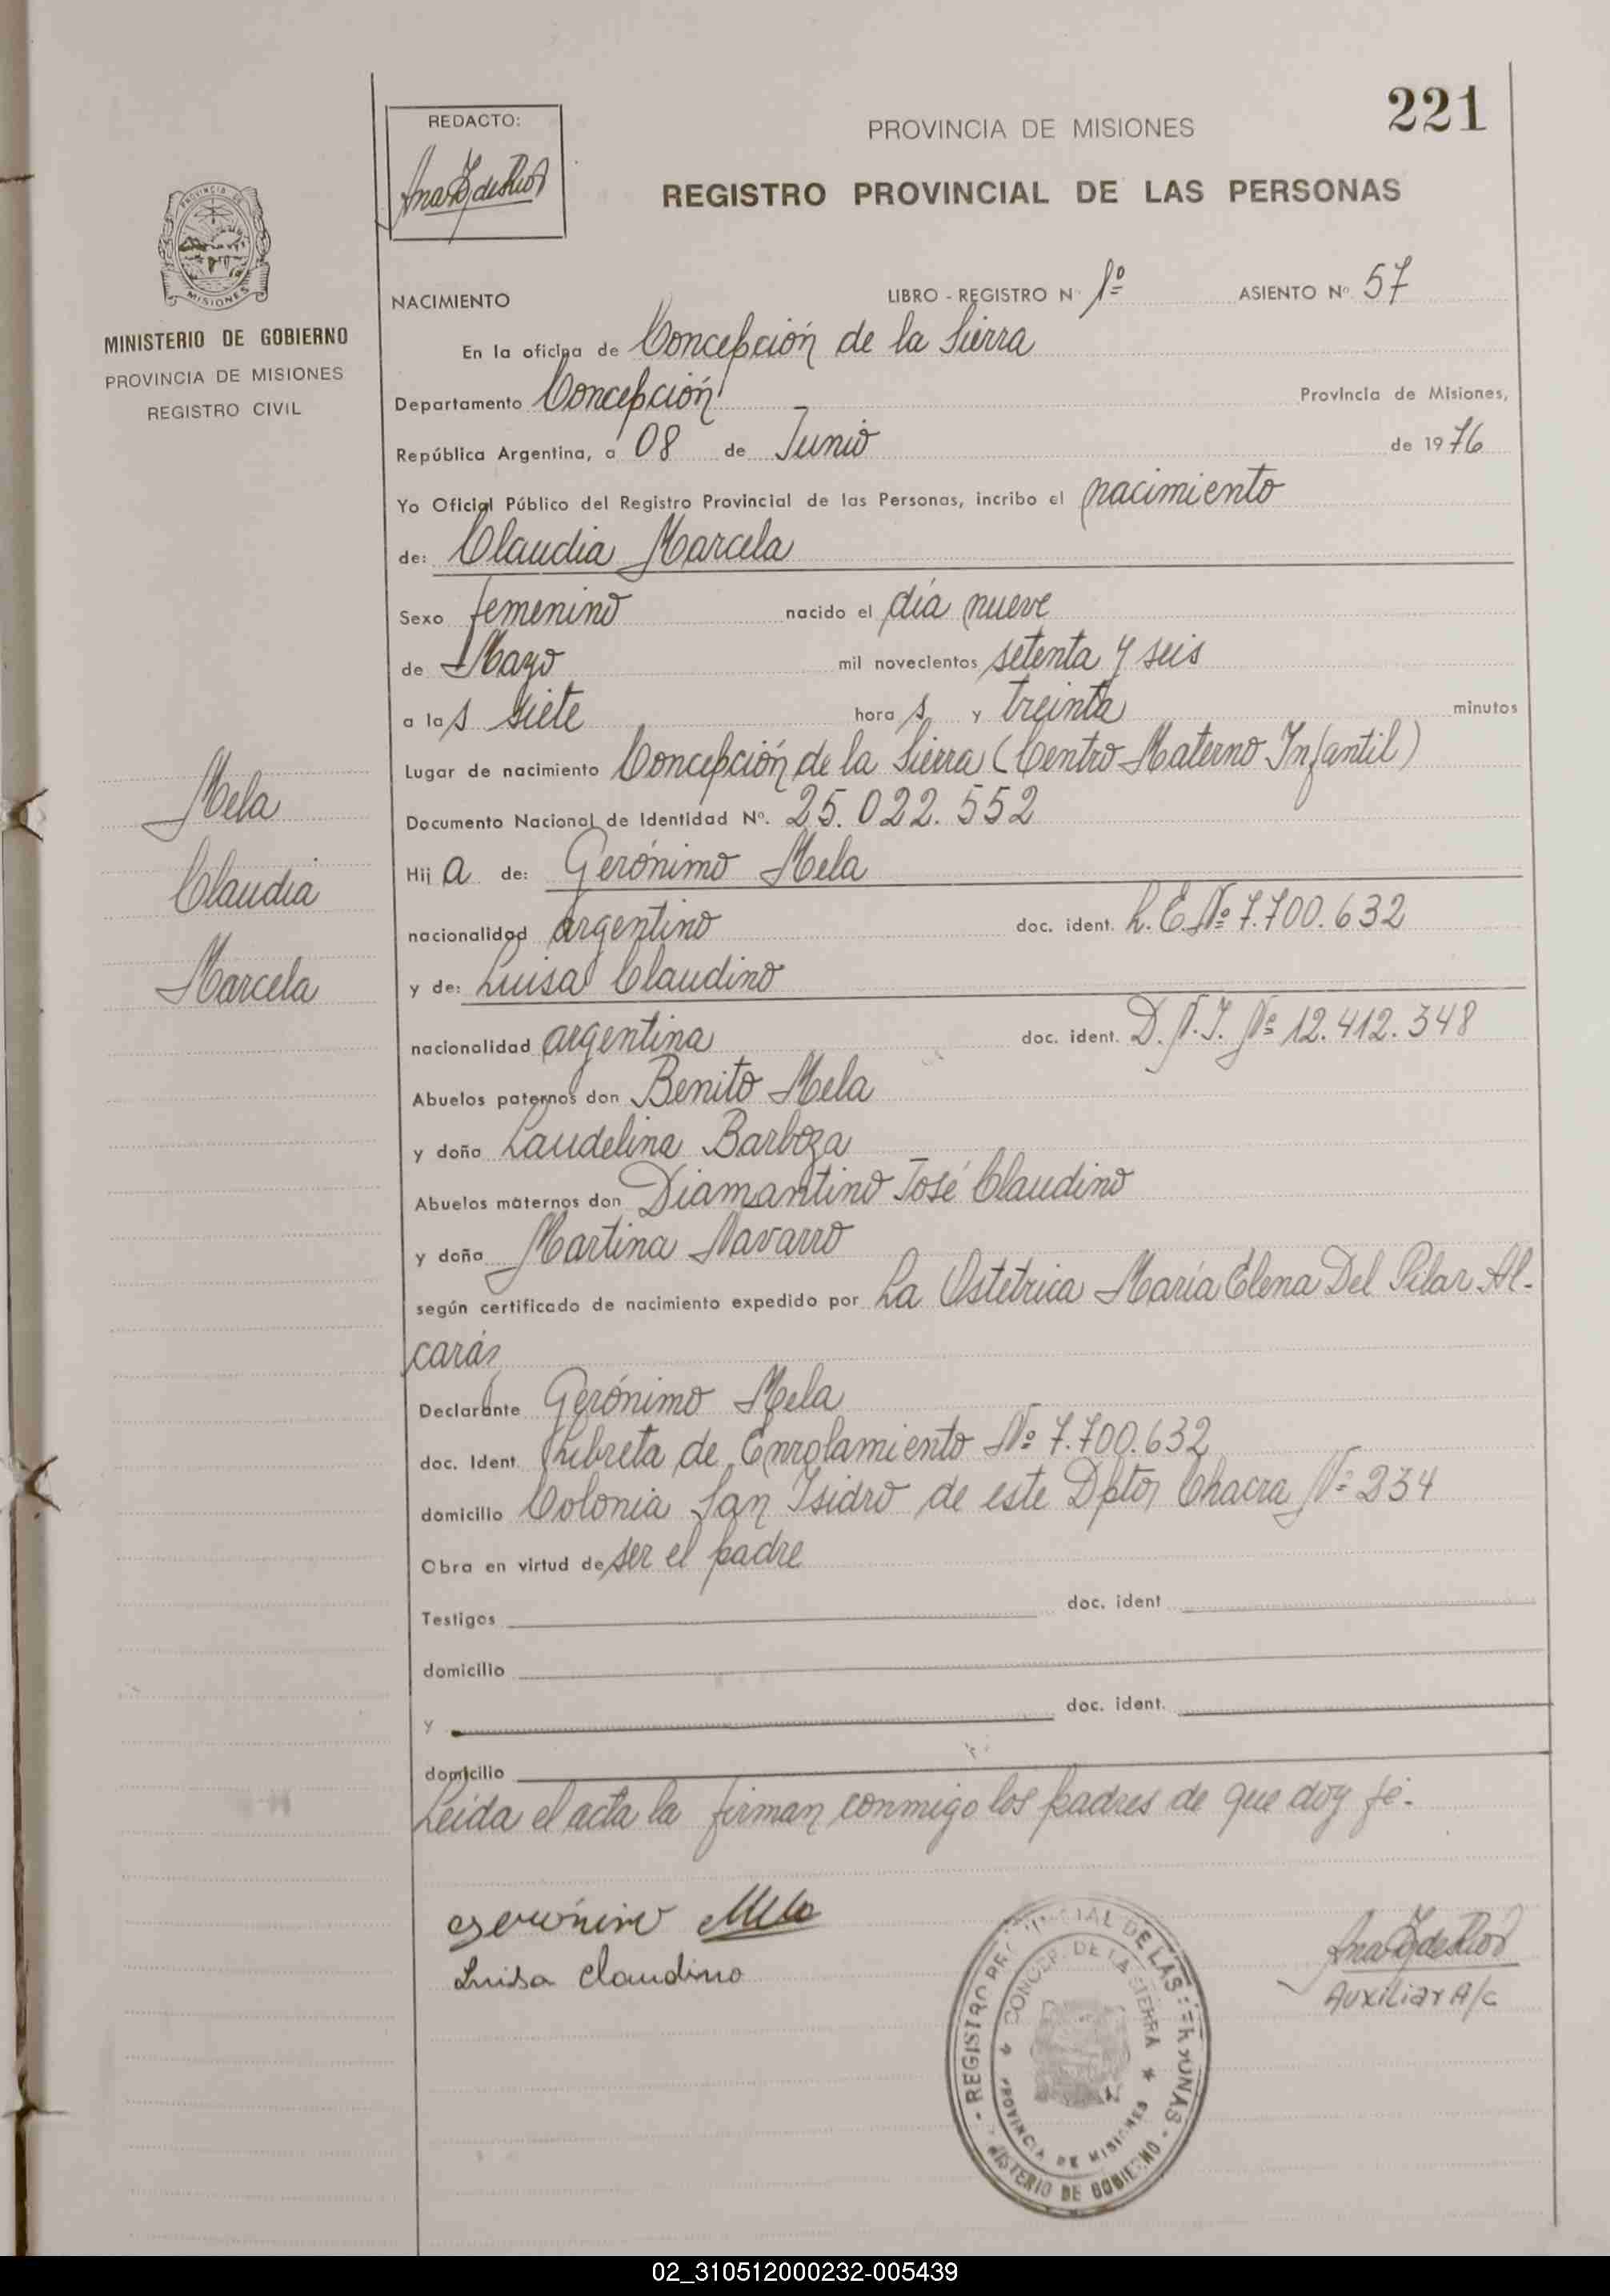 221
REDACTO:
PROVINCIA DE MISIONES
REGISTRO PROVINCIAL DE LAS PERSONAS
PROVINCIA DE
MISIONES
MINISTERIO DE GOBIERNO
PROVINCIA DE MISIONES
REGISTRO CIVIL
NACIMIENTO LIBRO - REGISTRO Nº 1º ASIENTO Nº 57
En la oficina de Concepción de la Sierra
Departamento Concepción Provincia de Misiones,
República Argentina, a 08 de Junio de 1976
Yo Oficial Público del Registro Provincial de las Personas, incribo el nacimiento
de: Claudia Marcela
Sexo femenino nacido el día nueve
de Mayo mil novecientos setenta y seis
a las siete horas y treinta minutos
Lugar de nacimiento Concepción de la Sierra (Centro Materno Infantil)
Documento Nacional de Identidad Nº. 25.022.552
Hija de: Gerónimo Mela
nacionalidad argentino doc. ident. L.E. Nº 7.700.632
y de: Luisa Claudino
nacionalidad argentina doc. ident. D.N.I. Nº 12.412.348
Abuelos paternos don Benito Mela
y doña Laudelina Barboza
Abuelos maternos don Diamantino José Claudino
y doña Martina Navarro
según certificado de nacimiento expedido por La Ostetrica María Elena Del Pilar Al-
carás
Declarante Gerónimo Mela
doc. Ident. Libreta de Enrolamiento Nº 7.700.632
domicilio Colonia San Isidro de este Dpto, Chacra Nº 234
Obra en virtud de ser el padre
Testigos doc. ident
domicilio
y doc. ident.
domicilio
Leída el acta la firman conmigo los padres de que doy fé.
Mela
Claudia
Marcela
Gerónimo Mela
Luisa Claudino
Auxiliar A/c
REGISTRO PROVINCIAL DE LAS PERSONAS
CONCEP. DE LA SIERRA
PROVINCIA DE MISIONES
MINISTERIO DE GOBIERNO
02_310512000232-005439